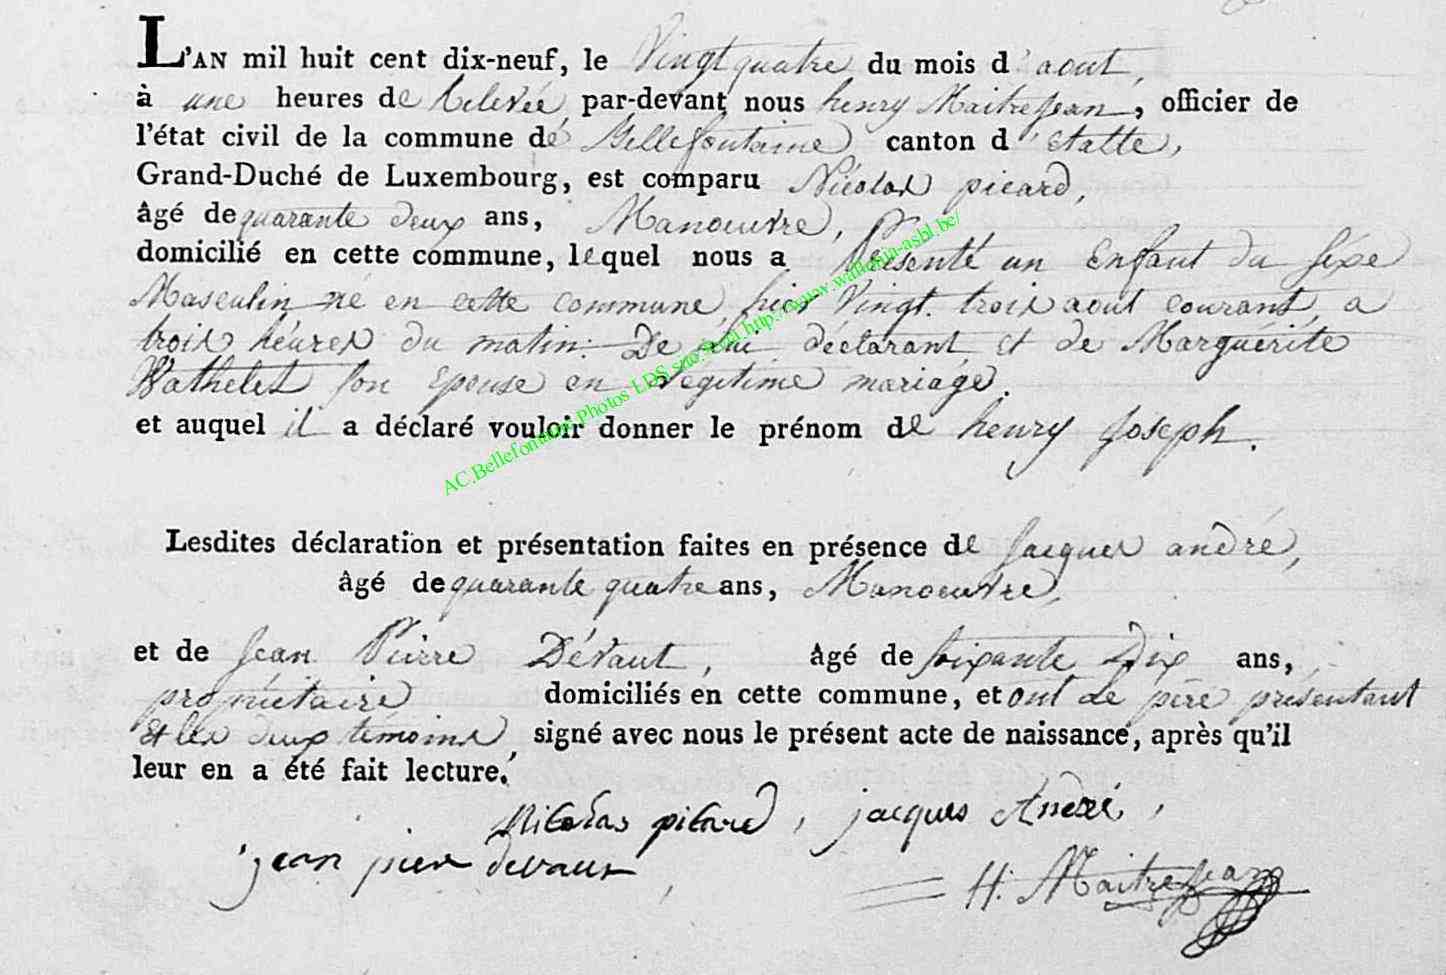 L'AN mil huit cent dix-neuf, le Vingt quatre du mois d'aout,
à une heures de Relevée, par-devant nous henry Maitrejean, officier de
l'état civil de la commune de Bellefontaine canton d'Etatte,
Grand-Duché de Luxembourg, est comparu Nicolas picard,
âgé de quarante deux ans, Manoeuvre,
domicilié en cette commune, lequel nous a Présenté un Enfant du sexe
Masculin né en cette commune, hier Vingt trois aout courant, a
trois héures du matin. De Lui déclarant Et de Marguérite
Wathelet son Epouse en Légitime mariage.
et auquel il a déclaré vouloir donner le prénom de henry Joseph.
AC.Bellefontaine Photos LDS site http://www.wallonia-asbl.be/
Lesdites déclaration et présentation faites en présence de Jacques andré,
âgé de quarante quatre ans, Manoeuvre,
et de Jean Pierre Dévaut, âgé de soixante Dix ans,
propriétaire domiciliés en cette commune, et ont Le père présentant
Et les deux témoins, signé avec nous le présent acte de naissance, après qu'il
leur en a été fait lecture.
Nicolas picard, jacques André,
jean pier devaux
H. Maitrejean